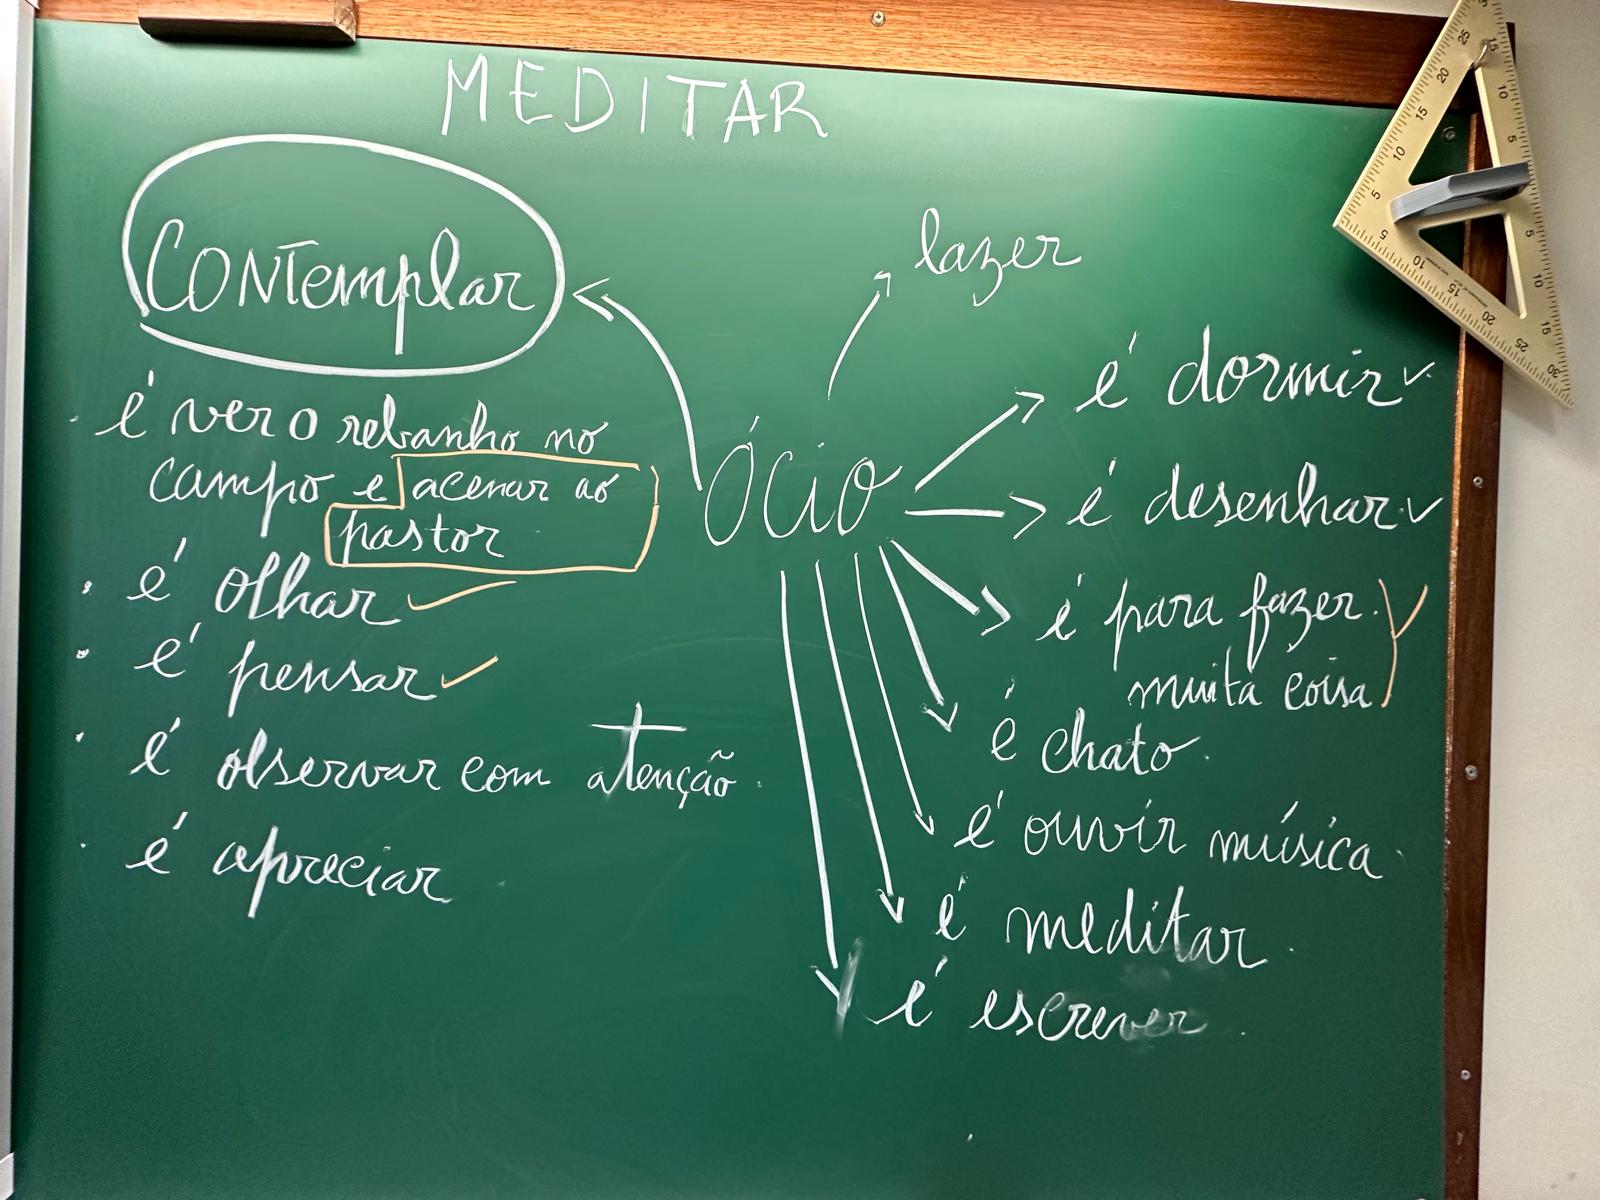 MEDITAR
Contemplar
é ver o rebanho no
campo e acenar ao
pastor
é olhar
é pensar
é observar com atenção.
é apreciar
Ócio
lazer
é dormir
é desenhar
é para fazer
muita coisa
é chato.
é ouvir música.
é meditar.
é escrever.